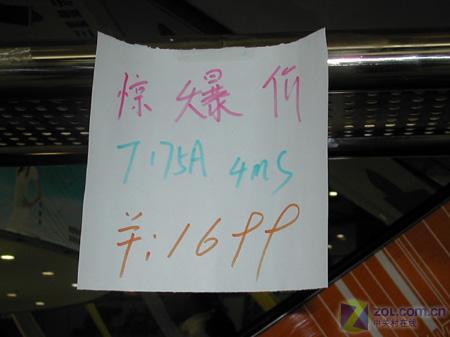 惊爆价
7.175A 4ms
羊:1699
ZOL.COM.CN
中关村在线